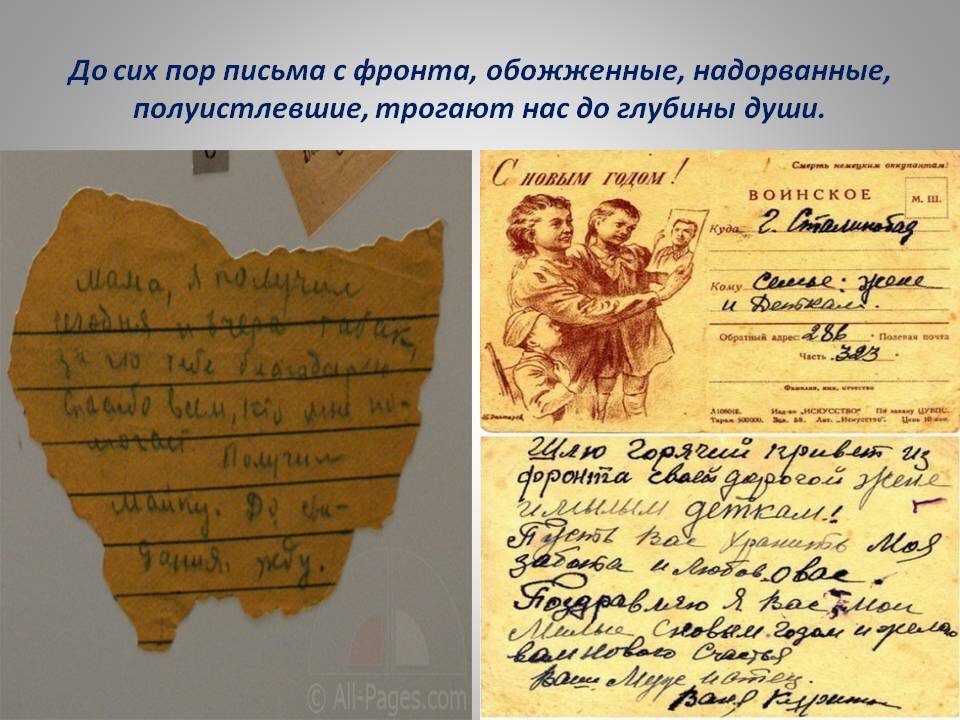 До сих пор письма с фронта, обожженные, надорванные,
полуистлевшие, трогают нас до глубины души.
мама, я получил
сегодня и вчера табак,
за что тебе благодарен
спасибо всем, кто мне по-
могает. Получил
майку. До сви-
дания, жду.
© All-Pages.com
С новым годом!
Смерть немецким оккупантам!
ВОИНСКОЕ
М. Ш.
Куда г. Сталинобад
Кому Семье: жене
и Деткам.
Обратный адрес: 286 Полевая почта
Часть 323
Фамилия, имя, отчество
Изд-во „ИСКУССТВО“ По заказу ЦУВПС.
Тираж 500000. Зак. 58. Лит. „Искусство“. Цена 10 коп.
Шлю Горячий привет из
фронта своей дорогой жене
и милым деткам!
Пусть Вас хранить Моя
забота и любов о вас.
Поздравляю я Вас Мои
Милые с новым годом и желаю
вам нового счастья
Ваш Муж и отец.
Ваня